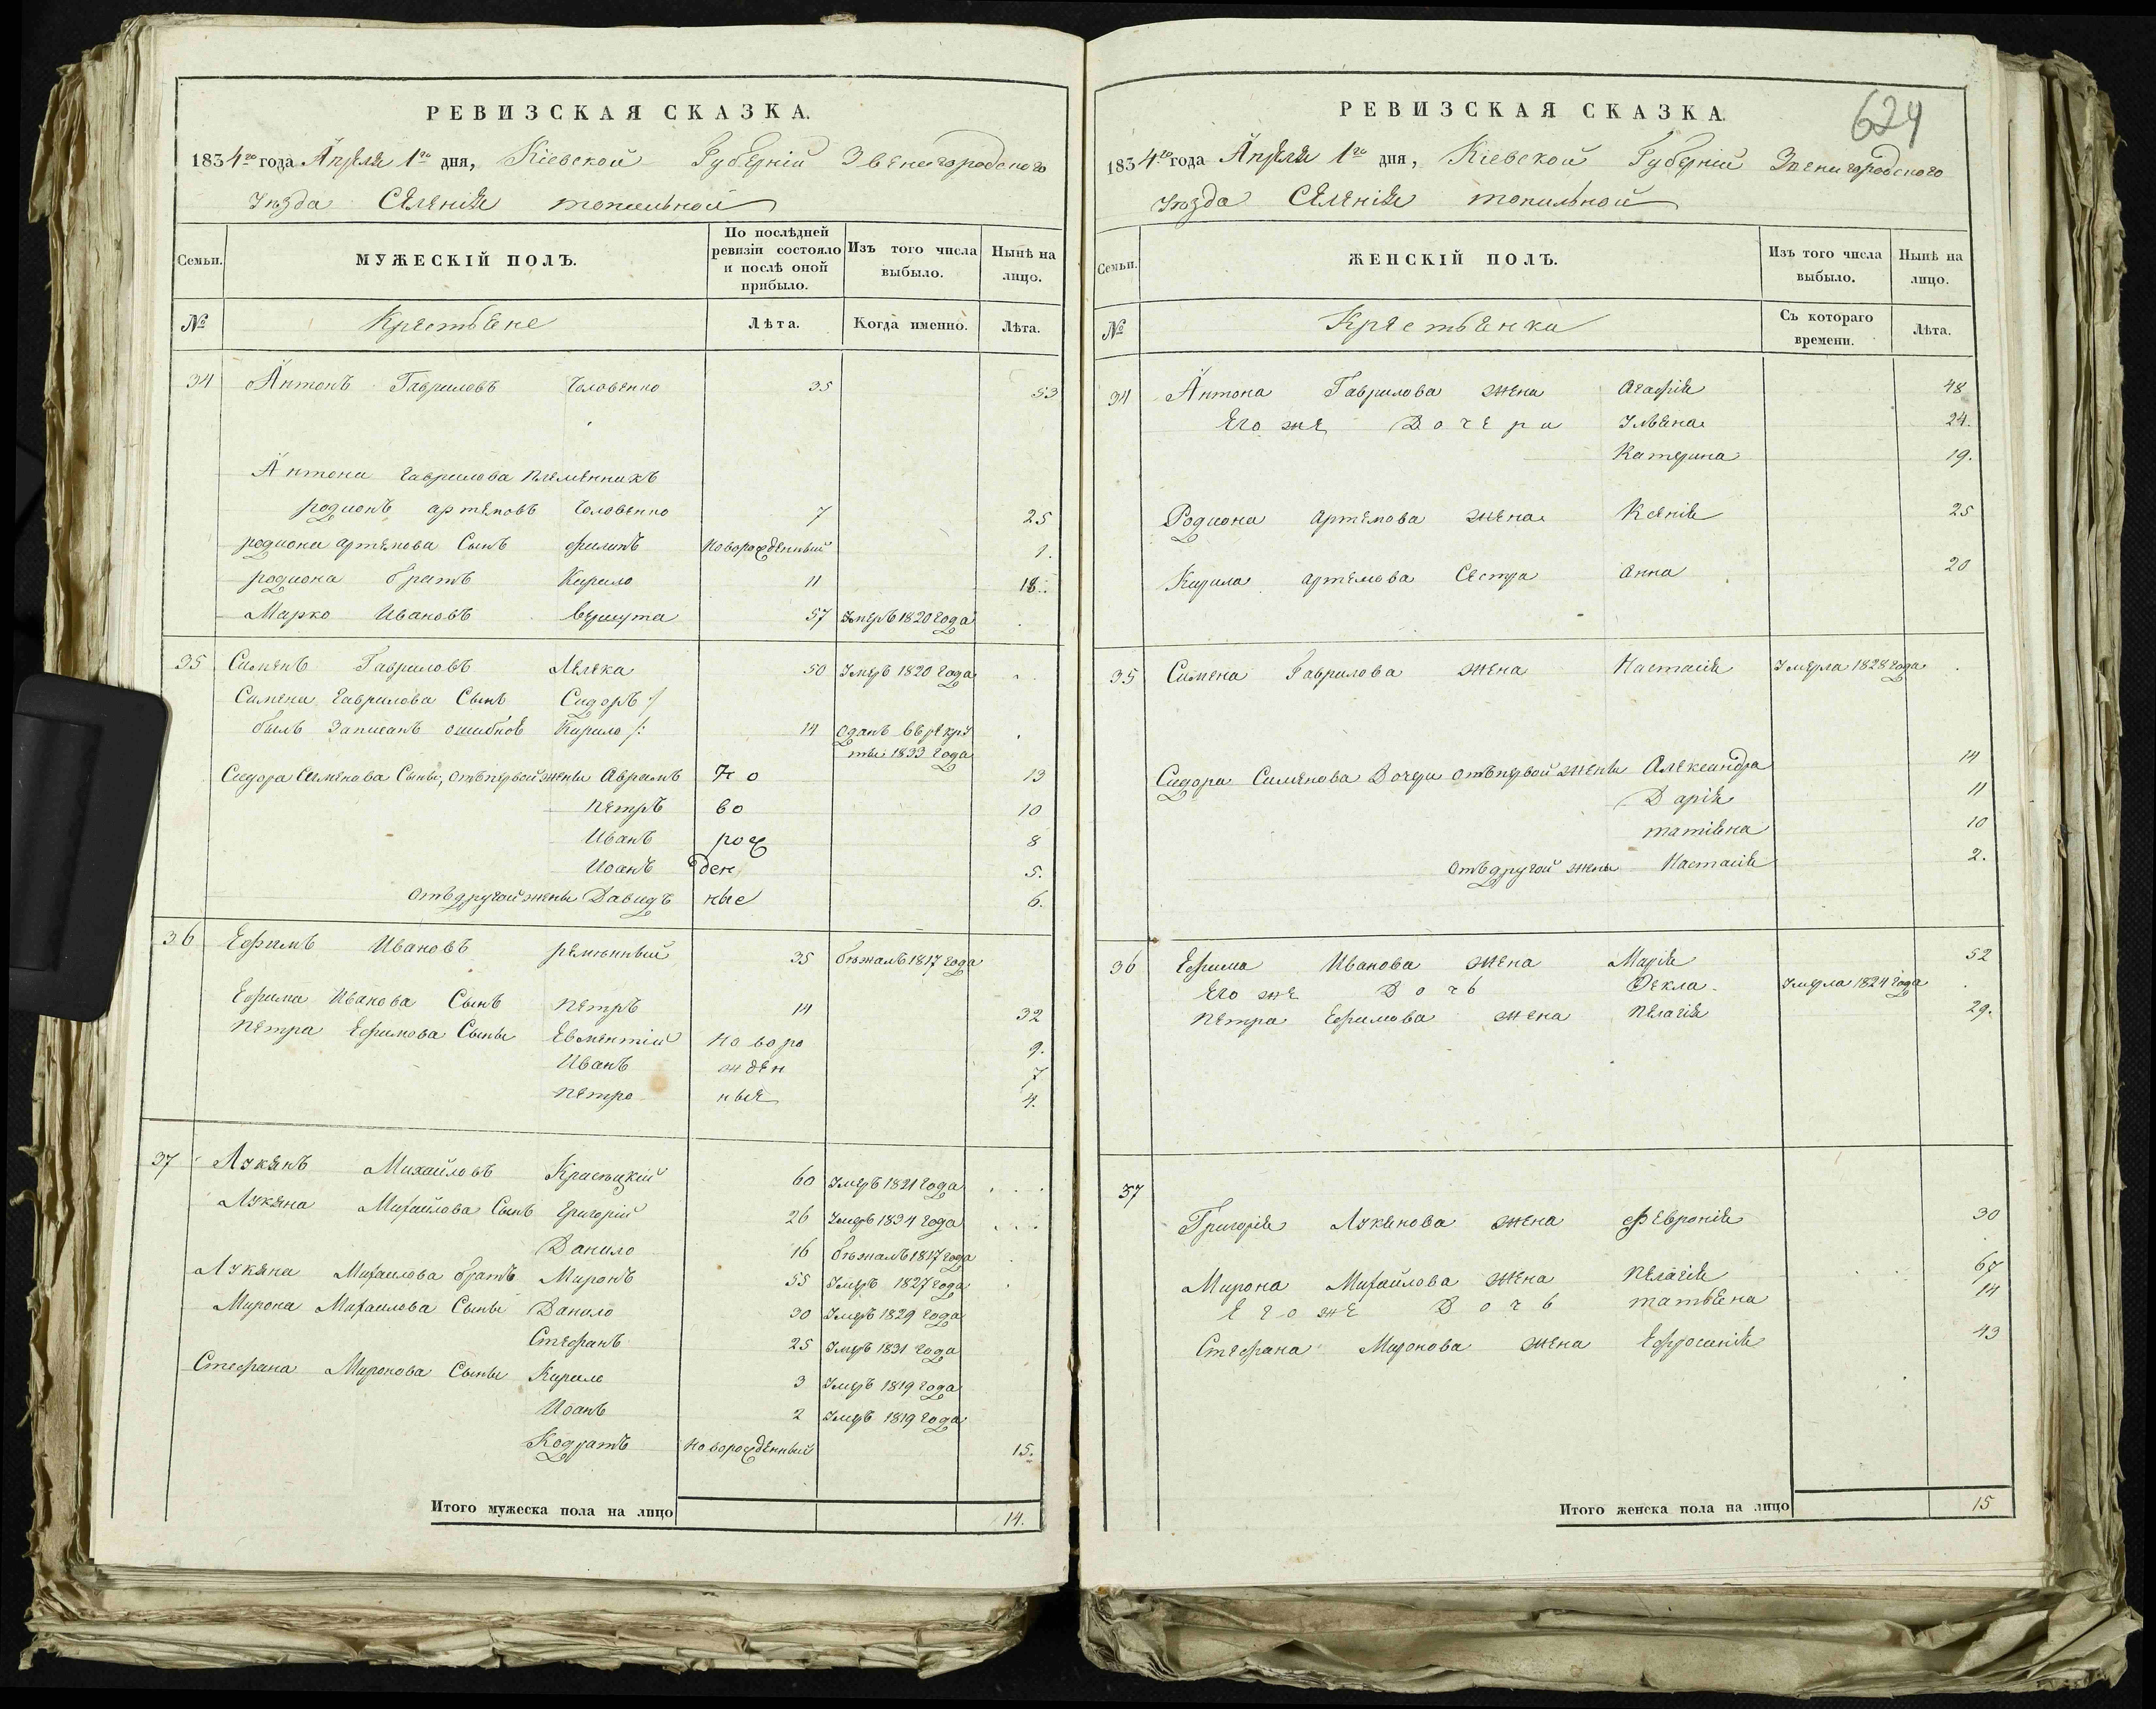 РЕВИЗСКАЯ СКАЗКА.
1834го года Апреля 1го дня, Кіевской Губерніи Звенигородского
Уезда Селенія топильной
Семьи. МУЖЕСКІЙ ПОЛЪ. По послѣдней ревизіи состояло и послѣ оной прибыло. Изъ того числа выбыло. Нынѣ на лицо.
№ Крестьяне Лѣта. Когда именно. Лѣта.
34 Антонъ Гавриловъ Головенко 35 53
Антона Гаврилова племенникъ
родионъ артемовъ Головенко 7 25
родиона артемова Сынъ филипъ новорожденный 1.
родиона братъ Кирило 11 18.
Марко Ивановъ 57 Умеръ 1820 года
35 Сименъ Гавриловъ Лелека 50 Умеръ 1820 Года
Симена Гаврилова Сынъ Сидоръ /
былъ записанъ ошибкоѣ Кирило /: 14 зданъ въ рекру
ты 1833 года
Сидора Сименова Сыны, отъ первой жены Аврамъ но 13
Петръ во 10
Иванъ рож 8
Иоанъ ден 5.
отъ другой жены Давидъ ные 6.
36 Ефимъ Ивановъ ременный 35 бѣжалъ 1817 года
Ефима Иванова Сынъ Петръ 14 32
Петра Ефимова Сыны Евментій новоро 9.
Иванъ жден 7
Петро ные 4.
37 Лукянъ Михайловъ 60 Умеръ 1821 года
Лукяна Михайлова Сынъ Григорій 26 Умеръ 1834 года
Данило 16 бѣжалъ 1817 года
Лукяна Михаилова братъ Миронъ 55 Умеръ 1827 года
Мирона Михаилова Сыны Данило 30 Умеръ 1829 года
Стефанъ 25 Умеръ 1831 года
Стефана Миронова Сыны Кирило 3 Умеръ 1819 года
Иоанъ 2 Умеръ 1819 года
Кодратъ новорожденный 15.
Итого мужеска пола на лицо 14.
624
РЕВИЗСКАЯ СКАЗКА.
1834го года Апреля 1го дня, Кіевской Губерніи Звенигородского
Уезда Селенія топильной
Семьи. ЖЕНСКІЙ ПОЛЪ. Изъ того числа выбыло. Нынѣ на лицо.
№ Крестьянки Съ котораго времени. Лѣта.
34 Антона Гаврилова жена Агафія 48
Его же Дочери Ульяна 24.
Катерина 19.
Родиона Артемова жена Ксенія 25
Кирила артемова Сестра Анна 20
35 Симена Гаврилова жена Настасія Умерла 1828 года
Сидора Сименова Дочери отъ первой жены Александра 14
Дарія 11
татіяна 10
отъ другой жены Настасія 2.
36 Ефима Иванова жена Марія 52
Его же Дочь Фекла Умерла 1824 года
Петра Ефимова жена Пелагія 29.
37
Григорія Лукянова жена Февронія 30
Мирона Михайлова жена Пелагія 67
Его же Дочь татьяна 14
Стефана Миронова жена Ефросинія 43
Итого женска пола на лицо 15